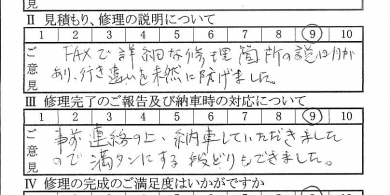 見
II 見積もり、修理の説明について
1 2 3 4 5 6 7 8 9 10
ご意見
FAXで詳細な修理箇所の説明が
あり、行き違いを未然に防げました。
III 修理完了のご報告及び納車時の対応について
1 2 3 4 5 6 7 8 9 10
ご意見
事前連絡の上、納車していただきました
ので満タンにする段どりもできました。
IV 修理の完成のご満足度はいかがですか
1 2 3 4 5 6 7 8 9 10